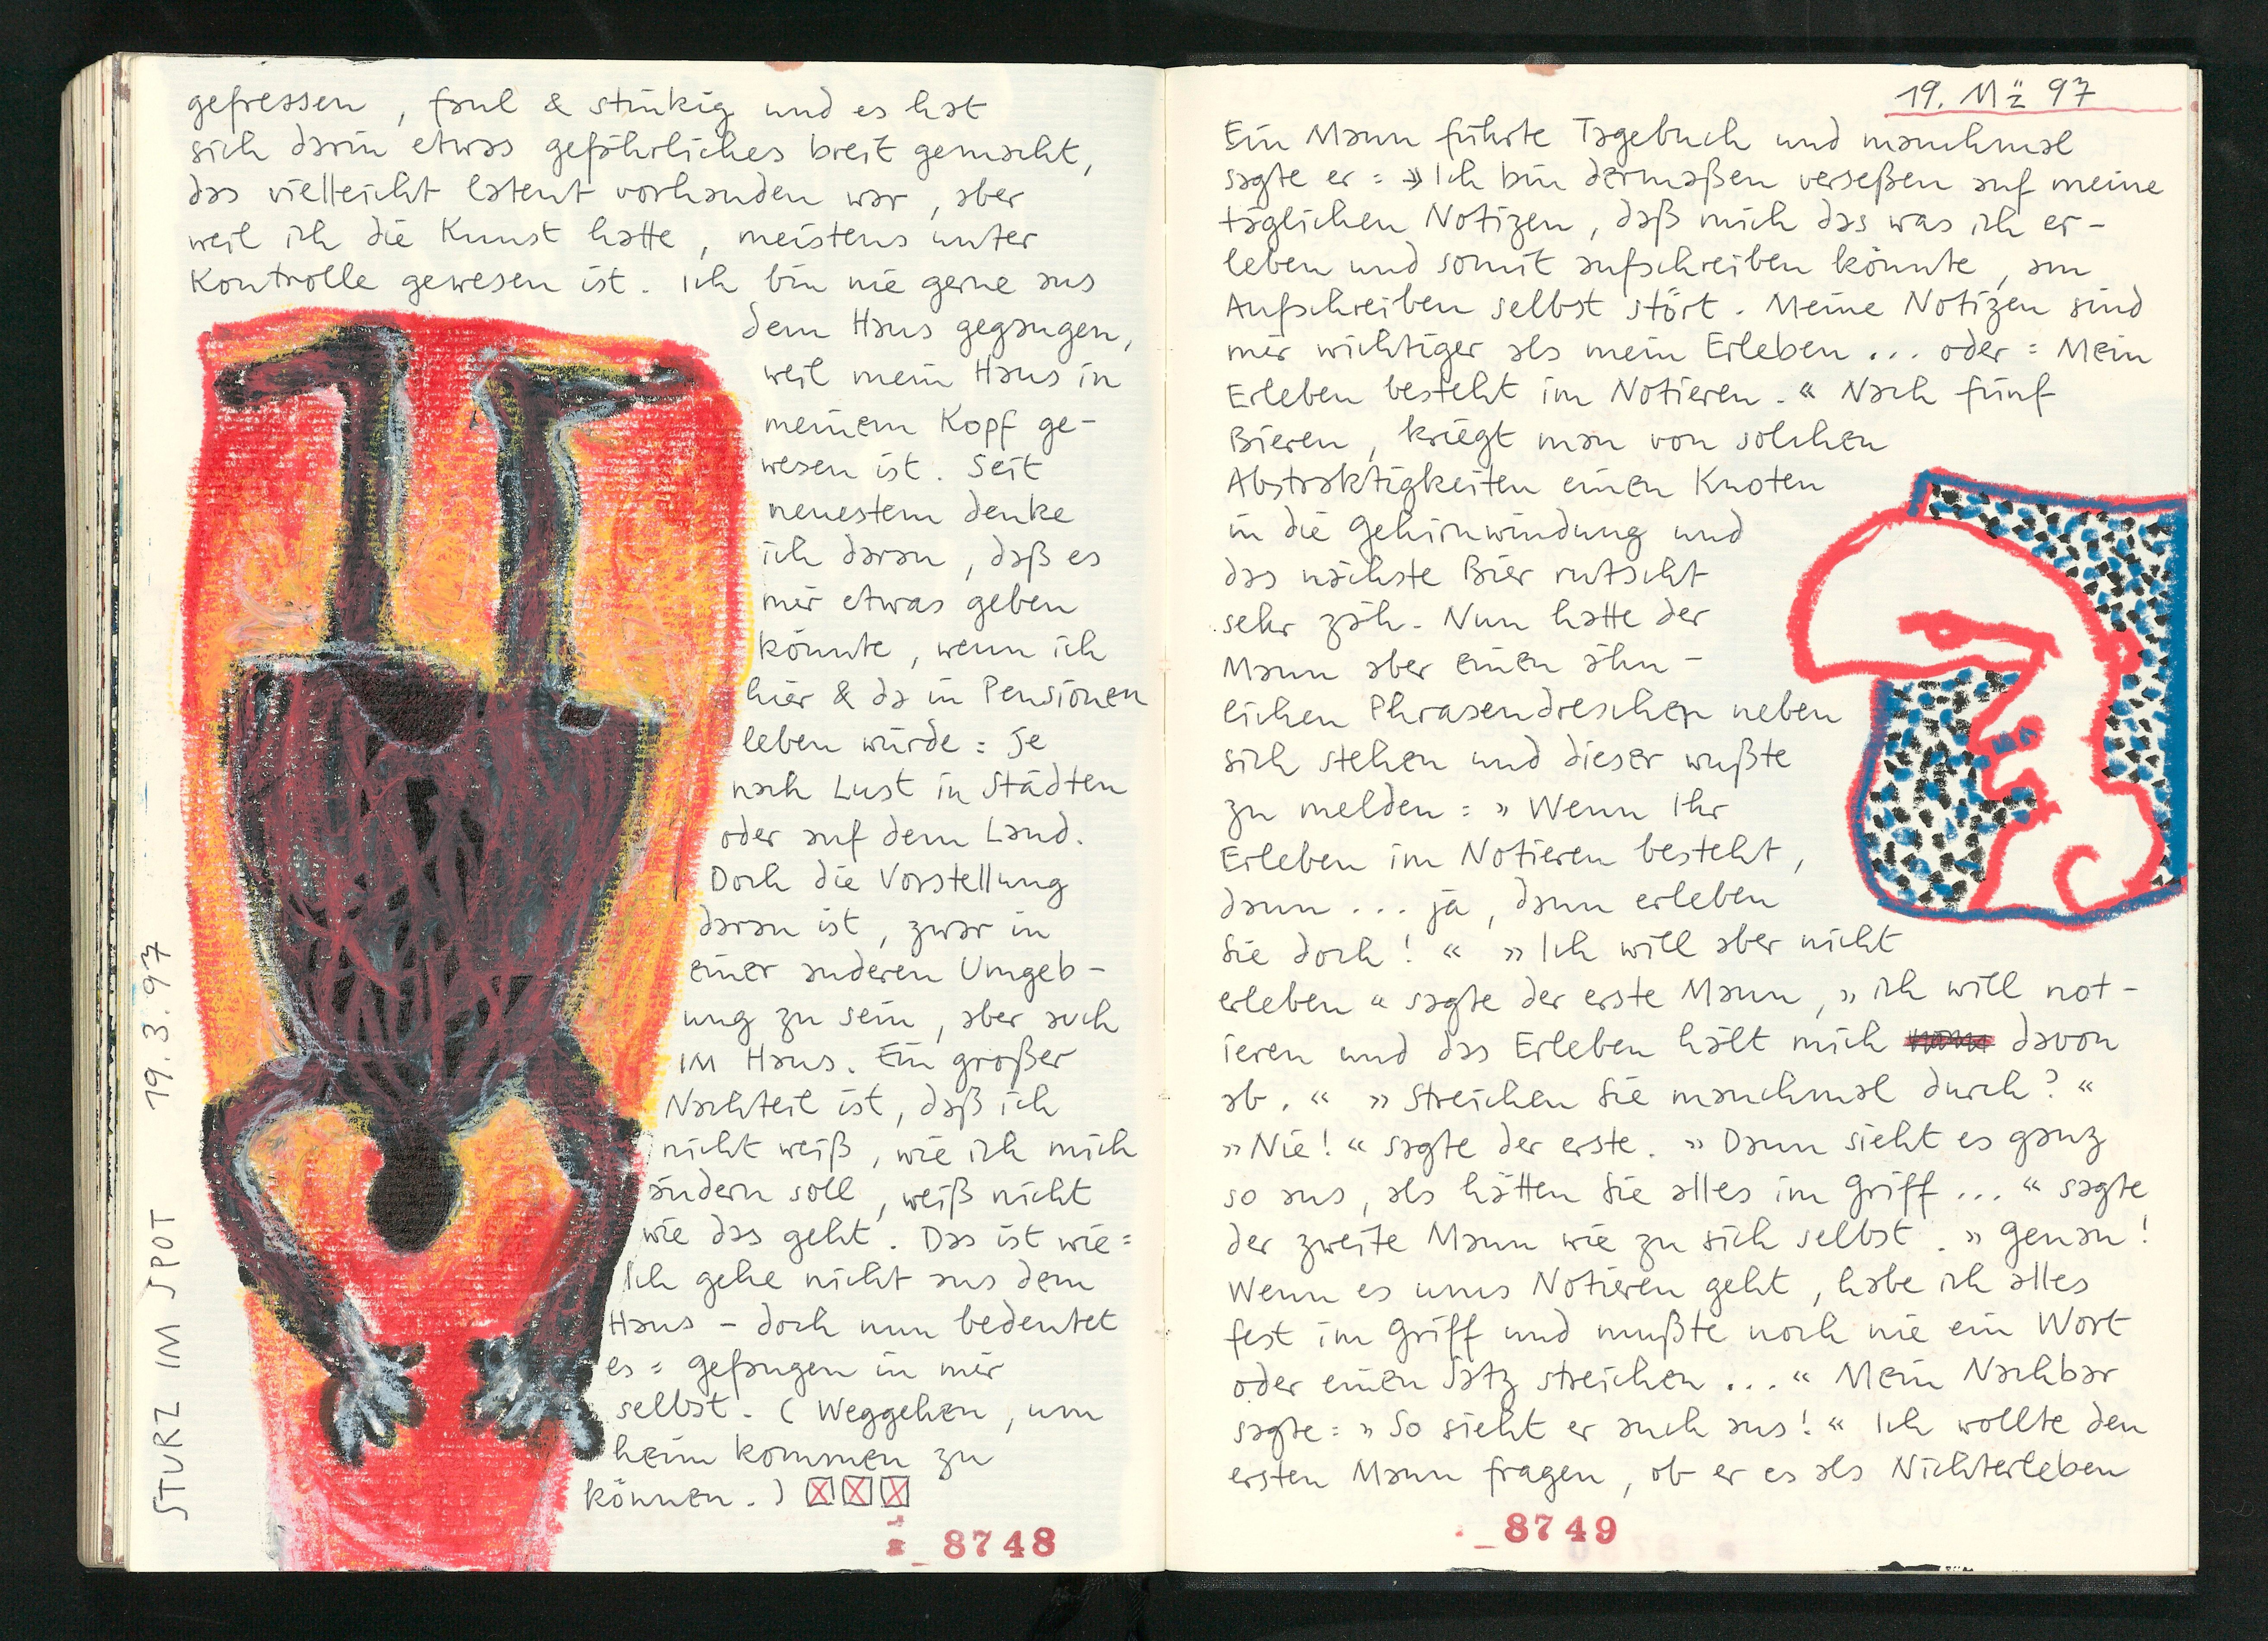 gefressen, faul & stinkig und es hat
sich darin etwas gefährliches breit gemacht,
das vielleicht latent vorhanden war, aber
weil ich die Kunst hatte, meistens unter
Kontrolle gewesen ist. Ich bin nie gerne aus
dem Haus gegangen,
weil mein Haus in
meinem Kopf ge-
wesen ist. Seit
neuestem denke
ich daran, daß es
mir etwas geben
könnte, wenn ich
hier & da in Pensionen
leben würde: je
nach Lust in Städten
oder auf dem Land.
Doch die Vorstellung
daran ist, zwar in
einer anderen Umgeb-
ung zu sein, aber auch
IM Haus. Ein großer
Nachteil ist, daß ich
nicht weiß, wie ich mich
ändern soll, weiß nicht
wie das geht. Das ist wie:
Ich gehe nicht aus dem
Haus - doch nun bedeutet
es: gefangen in mir
selbst. (Weggehen, um
heim kommen zu
können.)
STURZ IM SPOT 19.3.97
8748
19. Mz 97
Ein Mann führte Tagebuch und manchmal
sagte er: »Ich bin dermaßen verseßen auf meine
täglichen Notizen, daß mich das was ich er-
leben und somit aufschreiben könnte, am
Aufschreiben selbst stört. Meine Notizen sind
mir wichtiger als mein Erleben... oder: Mein
Erleben besteht im Notieren.« Nach fünf
Bieren, kriegt man von solchen
Abstraktigkeiten einen Knoten
in die Gehirnwindung und
das nächste Bier rutscht
sehr zäh. Nun hatte der
Mann aber einen ähn-
lichen Phrasendreschen neben
sich stehen und dieser wußte
zu melden: »Wenn Ihr
Erleben im Notieren besteht,
dann... ja, dann erleben
Sie doch!« »Ich will aber nicht
erleben« sagte der erste Mann, »ich will not-
ieren und das Erleben hält mich davon
ab.« »Streichen Sie manchmal durch?«
»Nie!« sagte der erste. »Dann sieht es ganz
so aus, als hätten Sie alles im Griff...« sagte
der zweite Mann wie zu sich selbst. »Genau!
Wenn es ums Notieren geht, habe ich alles
fest im Griff und mußte noch nie ein Wort
oder einen Satz streichen...« Mein Nachbar
sagte: »So sieht er auch aus!« Ich wollte den
ersten Mann fragen, ob er es als Nichterleben
8749